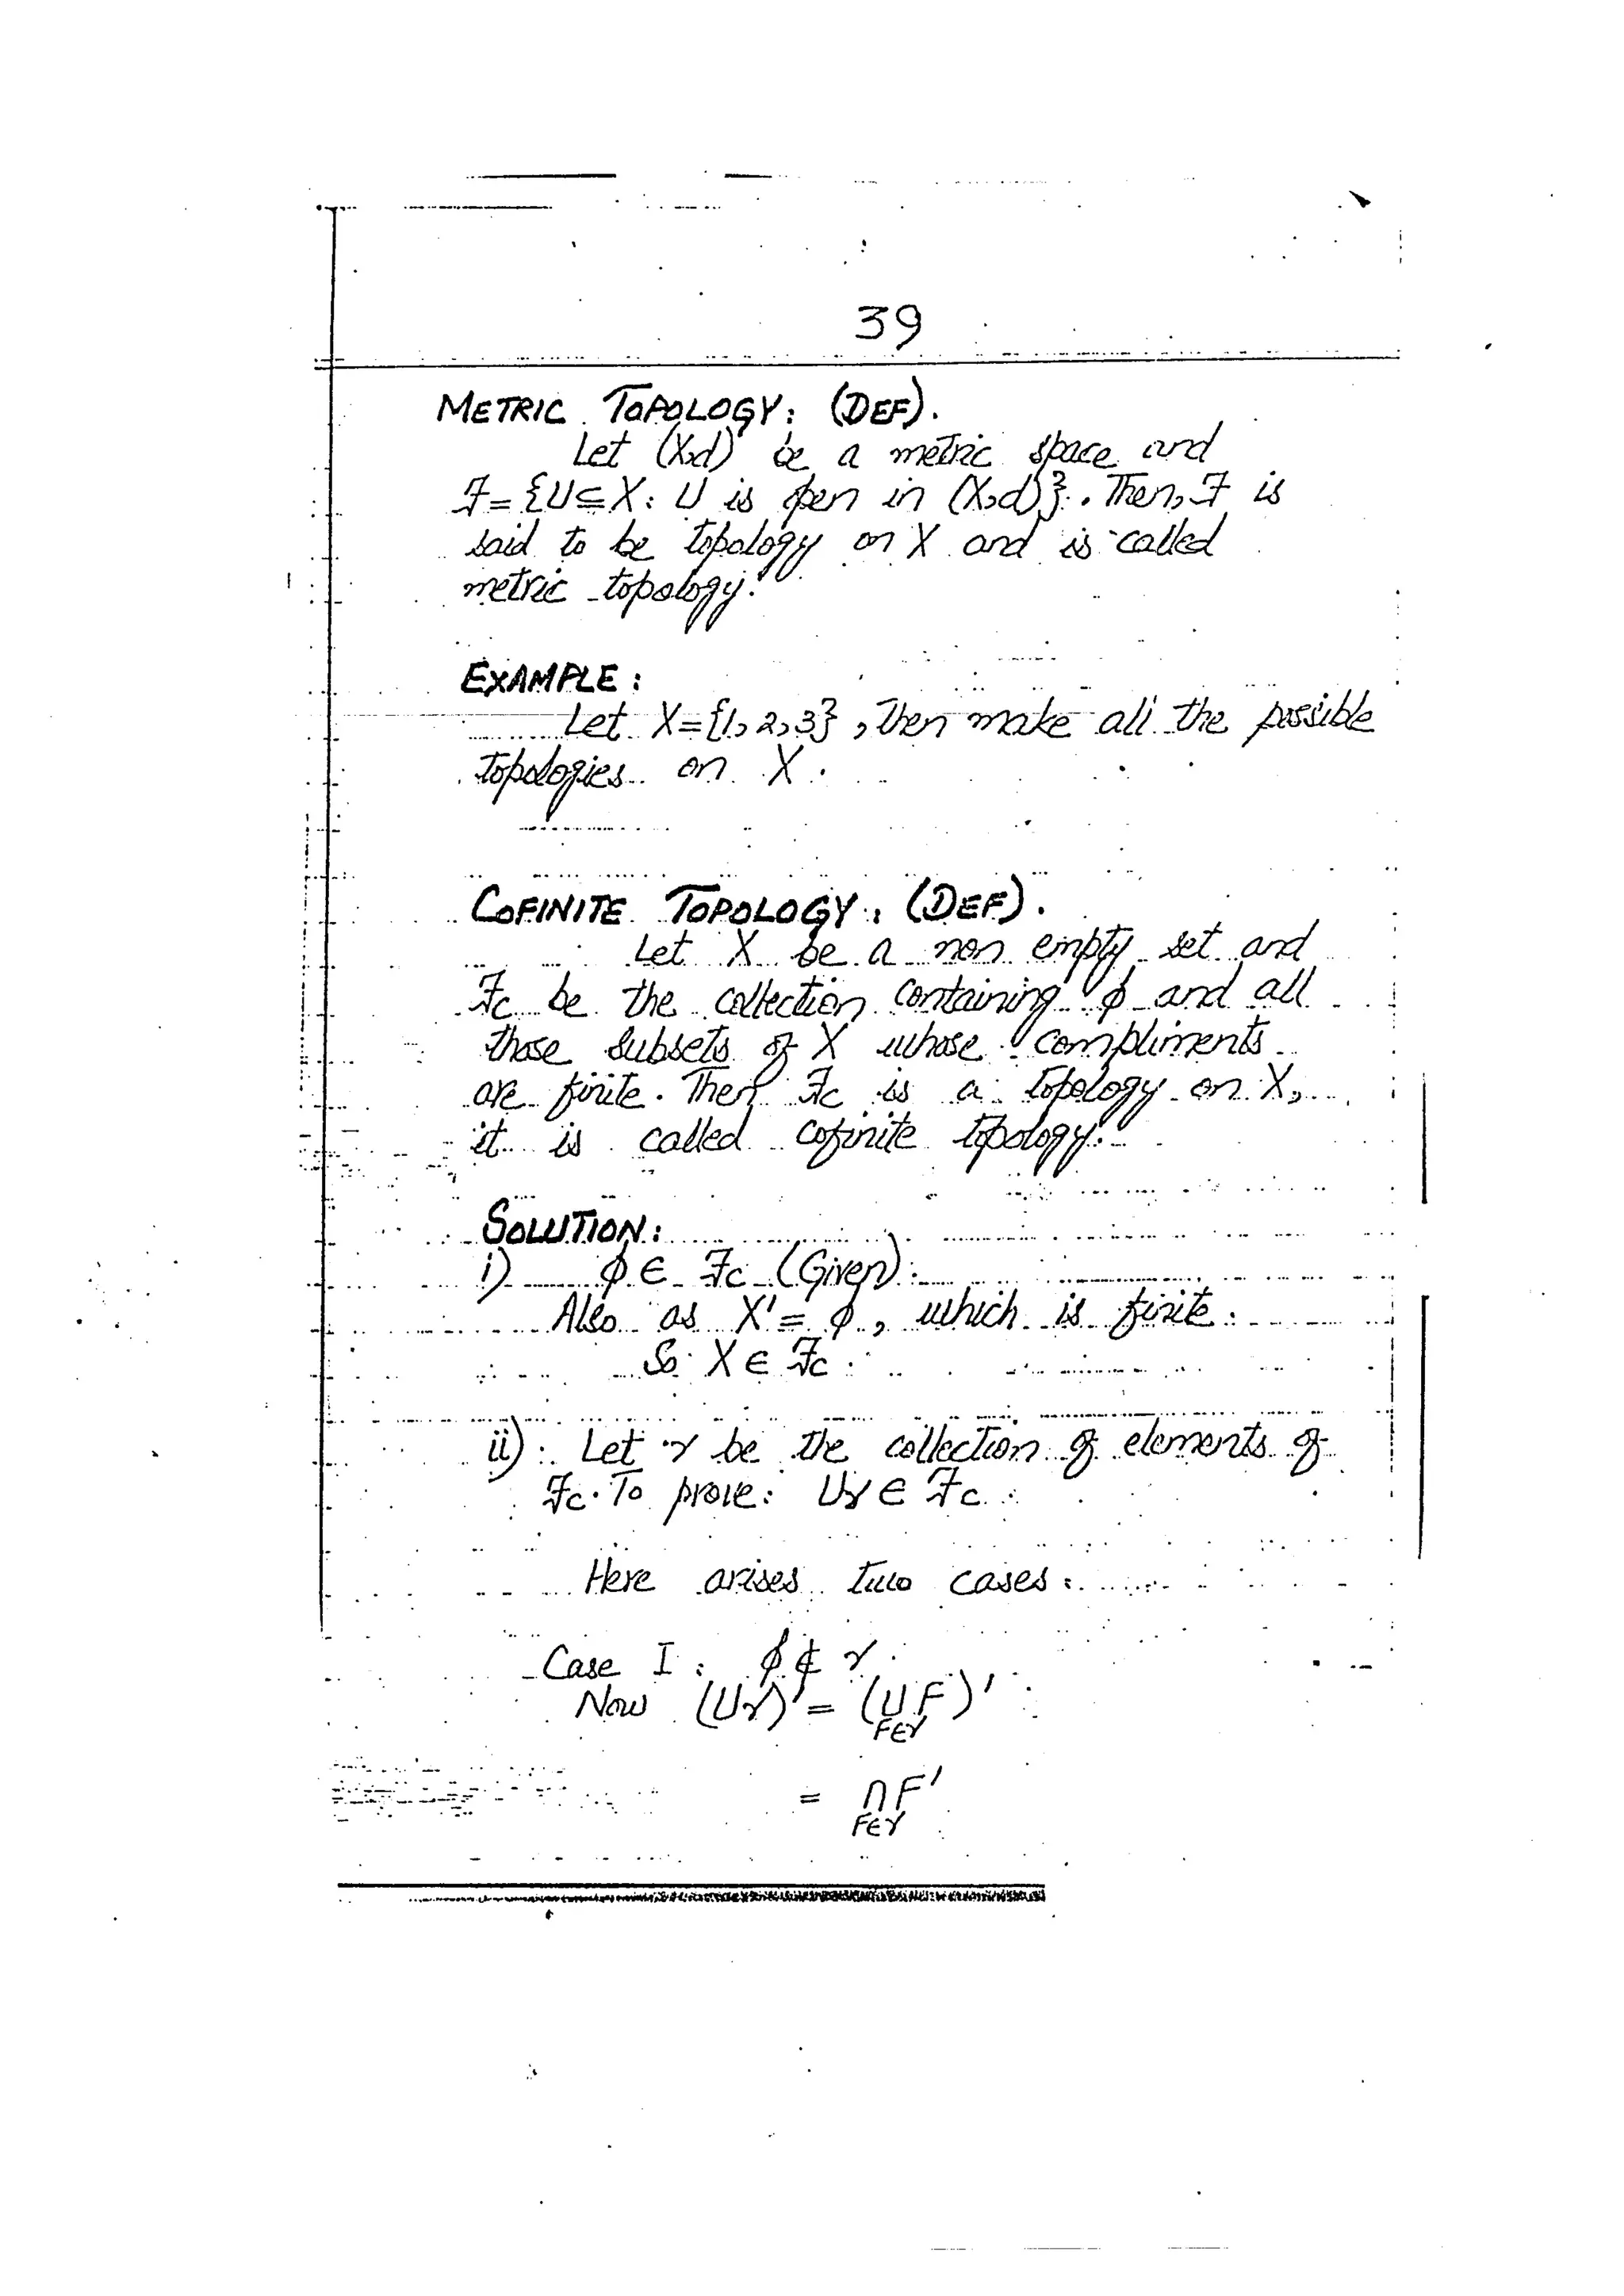 39
METRIC TOPOLOGY: (DEF).
Let (X,d) be a metric space and
Ƒ = {U⊆X: U is open in (X,d)}. Then, Ƒ is
said to be topology on X and is called
metric topology.
EXAMPLE:
Let X={1,2,3}, Then make all the possible
topologies on X.
COFINITE TOPOLOGY: (DEF).
Let X be a non empty set and
Ƒc be the collection containing ϕ and all
those subsets of X whose compliments
are finite. Then Ƒc is a topology on X,
it is called cofinite topology.
SOLUTION:
i) ϕ ∈ Ƒc (Given).
Also as X' = ϕ, which is finite.
So X ∈ Ƒc.
ii) Let γ be the collection of elements of
Ƒc. To prove: ∪γ ∈ Ƒc.
Here arises two cases.
Case I: ϕ ∉ γ.
Now (∪γ)' = (∪F)'
F∈γ
= ∩F'
F∈γ